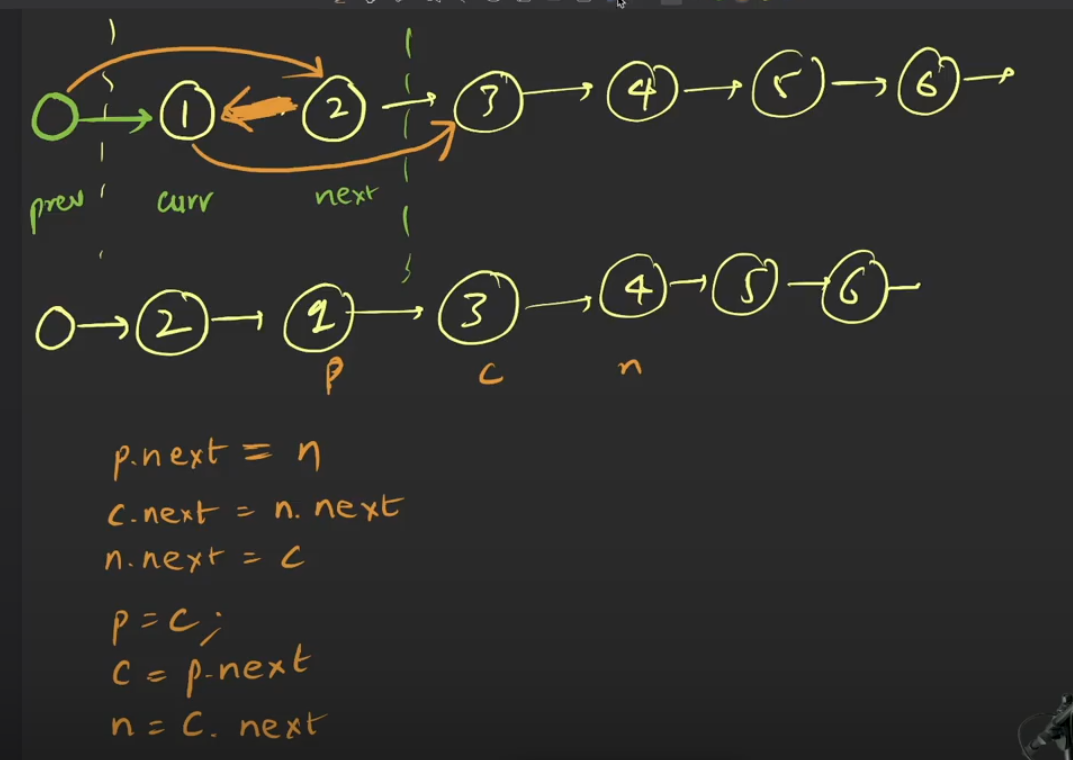 1 2 3 4 5 6
prev curr next
2 1 3 4 5 6
p c n
p.next = n
c.next = n. next
n.next = c
p = c;
c = p.next
n = c. next